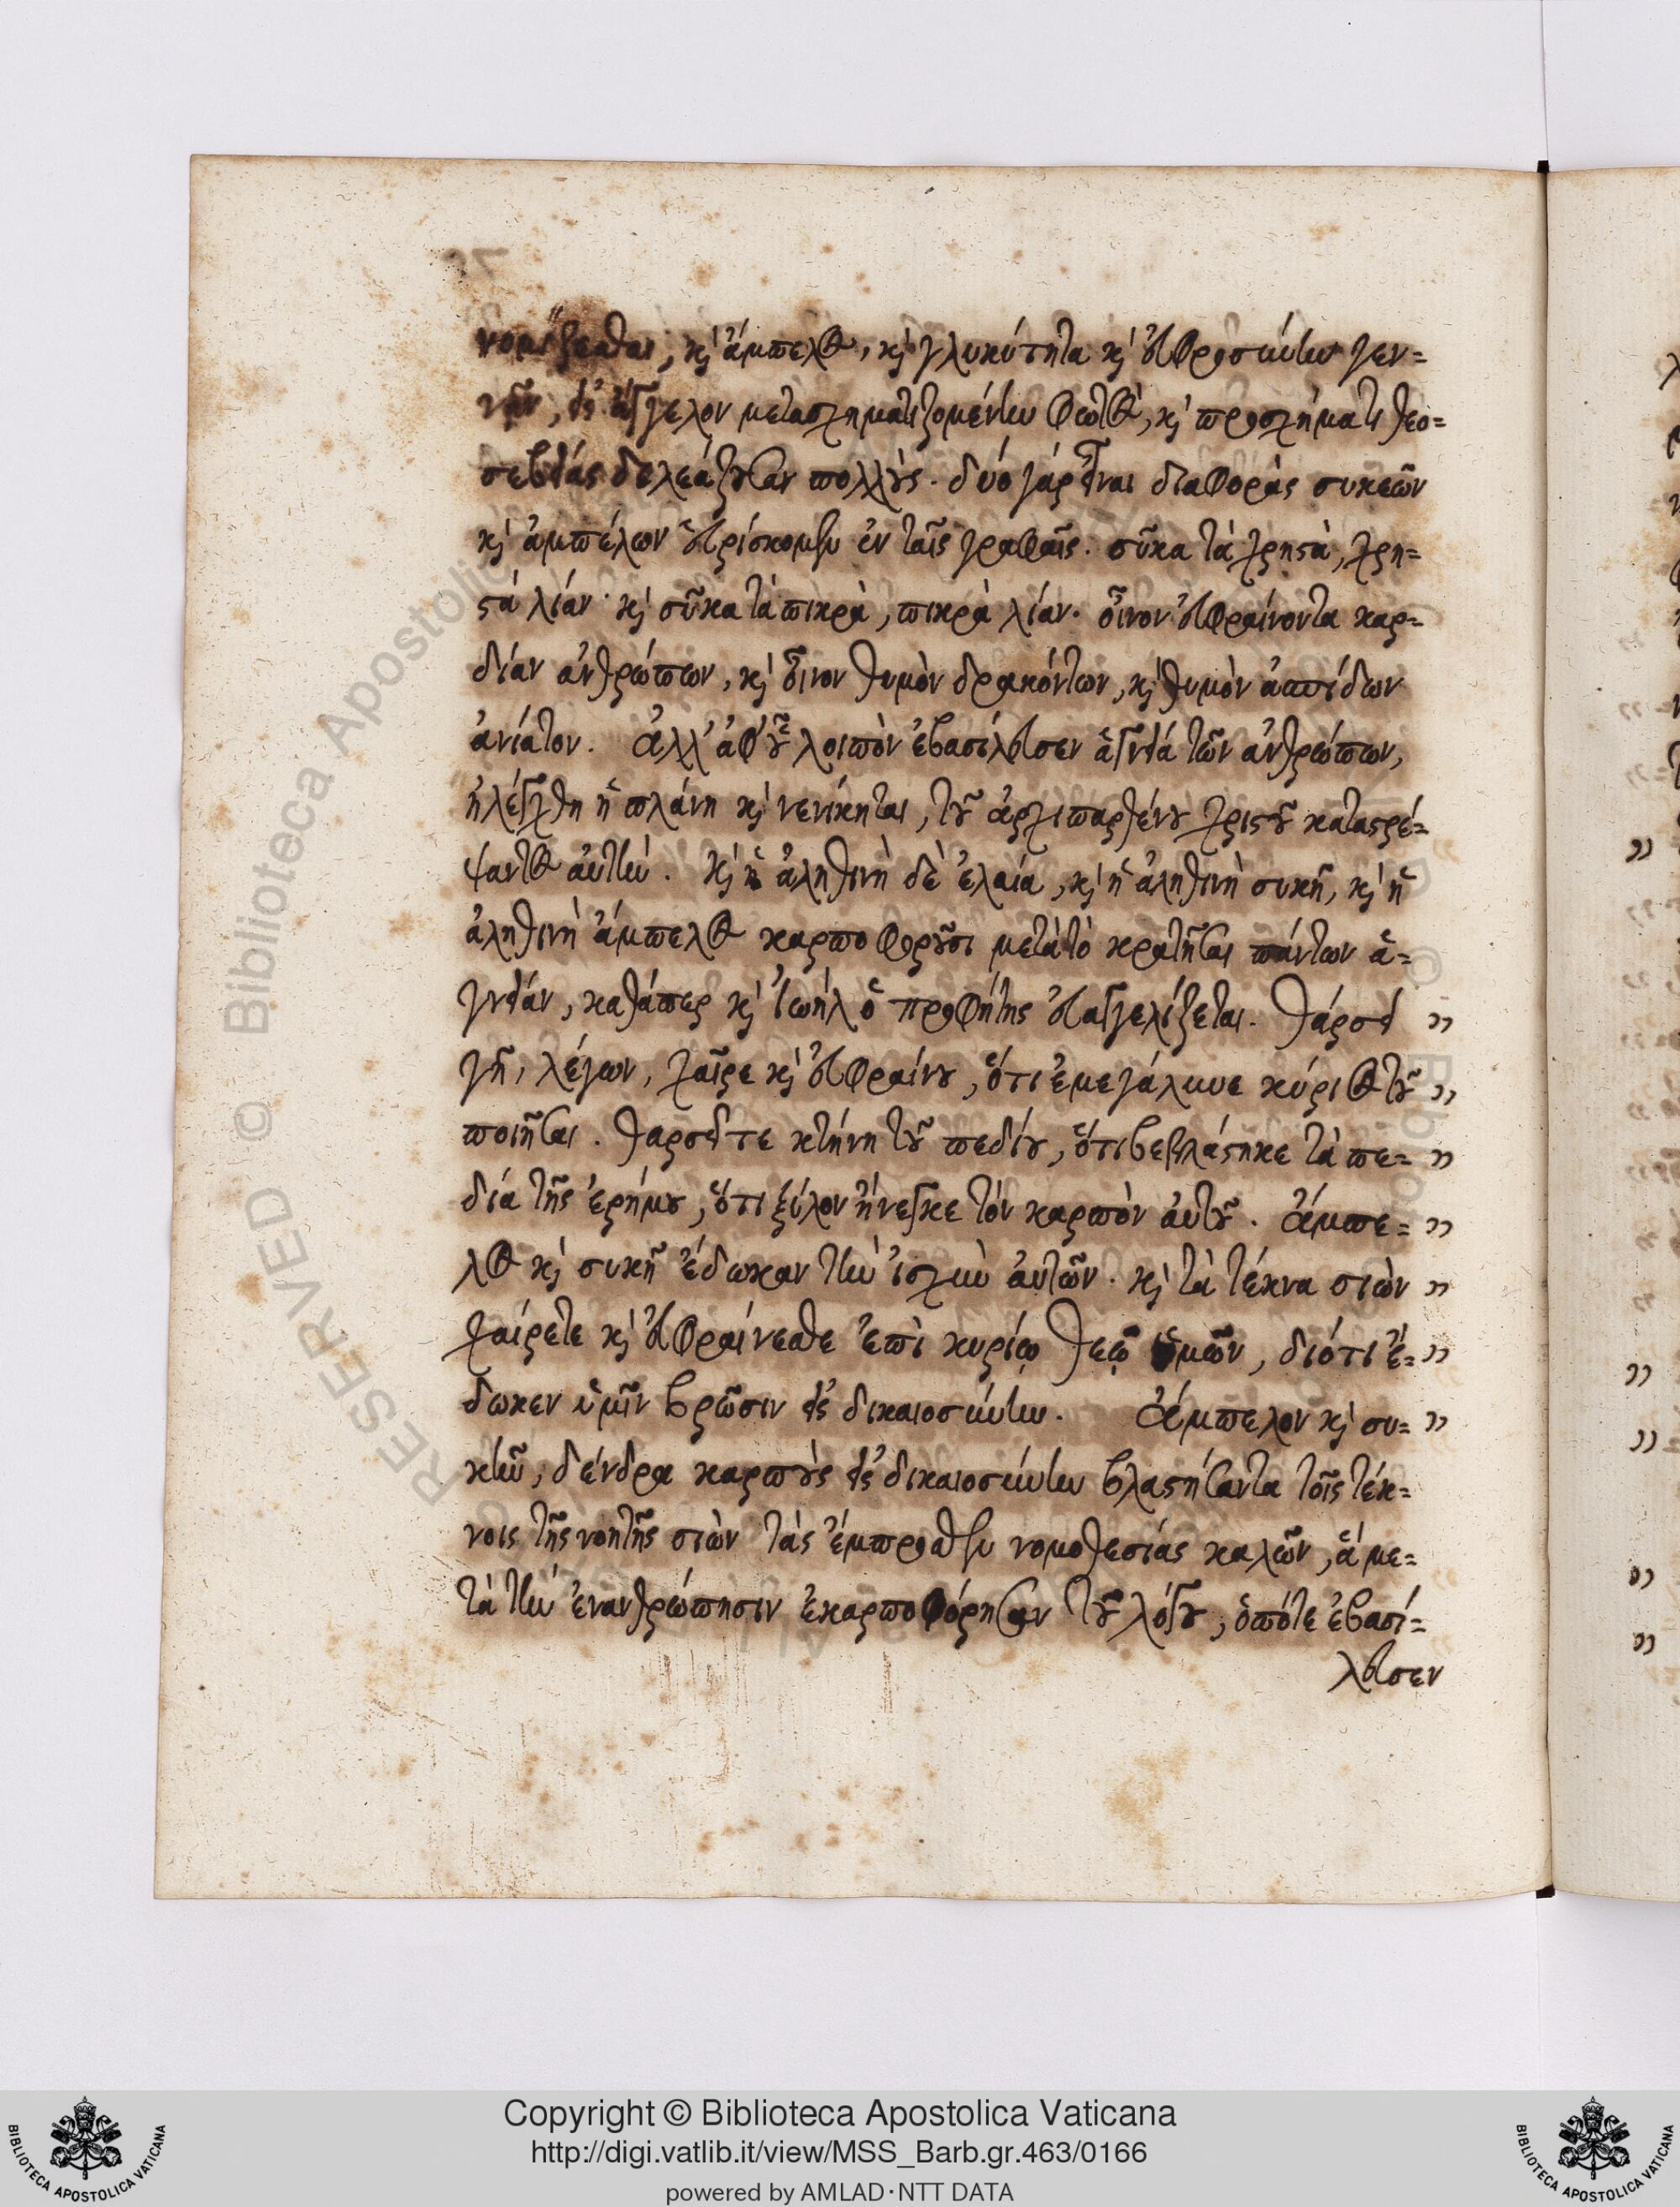 νομίζεσθαι, κ̀ ἄμπελος, κ̀ γλυκύτητα κ̀ εὐφροσύνην γεν=
νᾶν, εἰς ἄγγελον μετασχηματιζομένην φωτὸς, κ̀ προσχήματι θεο=
σεβείας δελεάζουσαν πολλούς. δύο γάρ εἶναι διαφοράς συκεῶν
κ̀ ἀμπέλων εὑρίσκομεν ἐν ταῖς γραφαῖς. σῦκα τά χρηστά, χρη=
στά λίαν· κ̀ σῦκα τά πικρὰ, πικρὰ λίαν. οἶνον εὐφραίνοντα καρ=
δίαν ἀνθρώπων, κ̀ οἶνον θυμὸν δρακόντων, κ̀ θυμὸν ἀσπίδων
ἀνίατον. Ἀλλ' ἀφ' οὗ λοιπὸν ἐβασίλευσεν ἁγνεία τῶν ἀνθρώπων,
ἠλέγχθη ἡ πλάνη κ̀ νενίκηται, τοῦ ἀρχιπαρθένου χριστοῦ καταστρέ=
ψαντος αὐτήν. κ̀ ἡ ἀληθινὴ δὲ ἐλαία, κ̀ ἡ ἀληθινὴ συκῆ, κ̀ ἡ
ἀληθινὴ ἄμπελος καρποφοροῦσι μετὰ τὸ κρατῆσαι πάντων ἁ=
γνείαν, καθάπερ κ̀ Ἰωὴλ ὁ προφήτης εὐαγγελίζεται. Θάρσει »
γῆ, λέγων, χαῖρε κ̀ εὐφραίνου, ὅτι ἐμεγάλυνε κύριος τοῦ »
ποιῆσαι. θαρσεῖτε κτήνη τοῦ πεδίου, ὅτι βεβλάστηκε τὰ πε= »
δία τῆς ἐρήμου, ὅτι ξύλον ἤνεγκε τὸν καρπὸν αὐτοῦ. ἄμπε= »
λος κ̀ συκῆ ἔδωκαν τὴν ἰσχὺν αὐτῶν. κ̀ τὰ τέκνα σιὼν »
χαίρετε κ̀ εὐφραίνεσθε ἐπὶ κυρίῳ θεῷ ὑμῶν, διότι ἔ= »
δωκεν ὑμῖν βρῶσιν εἰς δικαιοσύνην. Ἄμπελον κ̀ συ= »
κῆν, δένδρα καρποὺς εἰς δικαιοσύνην βλαστήσαντα τοῖς τέκ=
νοις τῆς νοητῆς σιὼν τὰς ἔμπροσθεν νομοθεσίας καλῶν, ἃ με=
τὰ τὴν ἐνανθρώπησιν ἐκαρποφόρησαν τοῦ λόγου, ὁπότε ἐβασί=
λευσεν
Copyright © Biblioteca Apostolica Vaticana
http://digi.vatlib.it/view/MSS_Barb.gr.463/0166
powered by AMLAD·NTT DATA